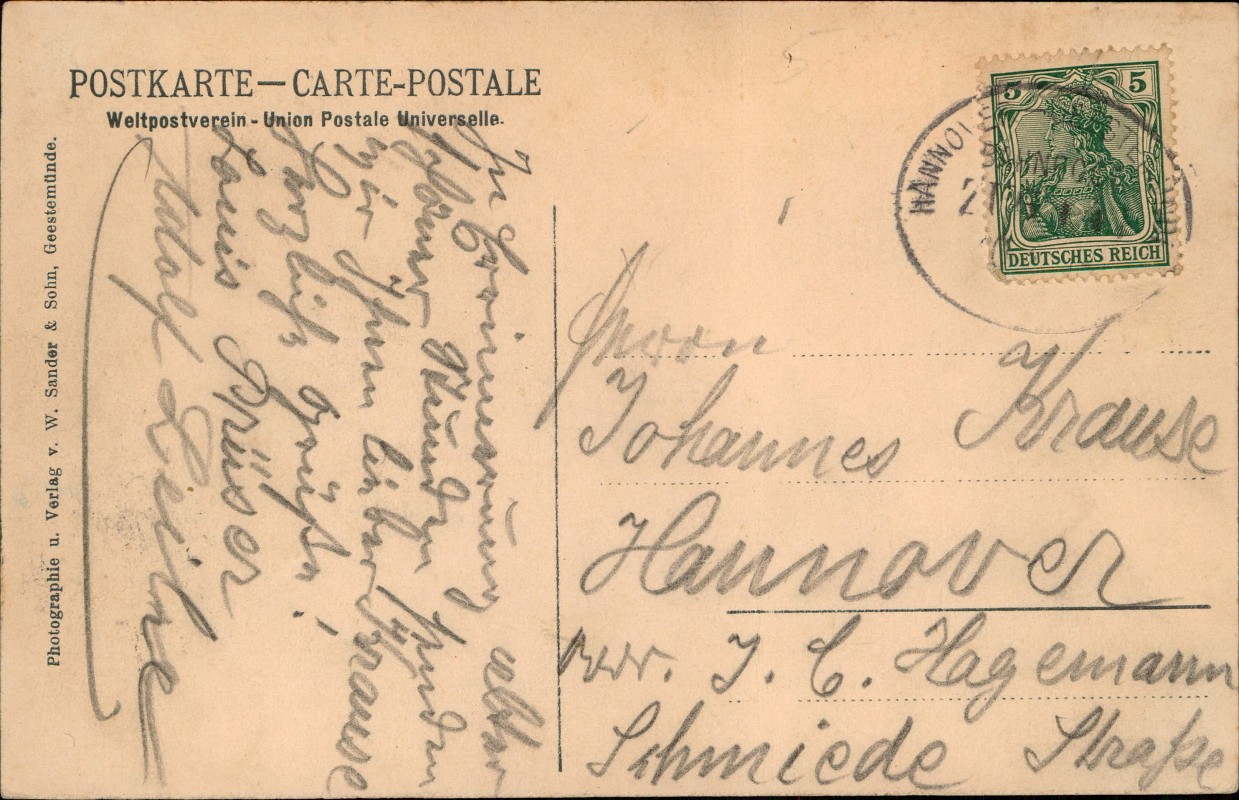 POSTKARTE — CARTE-POSTALE
Weltpostverein - Union Postale Universelle.
Photographie u. Verlag v. W. Sander & Sohn, Geestemünde.
In Erinnerung alter
schöner Stunden senden
wir Ihnen lieber Krause
herzliche Grüße!
Louis Brüser
Adolf Leike
5 5
DEUTSCHES REICH
HANNOVER
Herrn
Johannes Krause
Hannover
Adr. J. C. Hagemann
Schmiede Straße